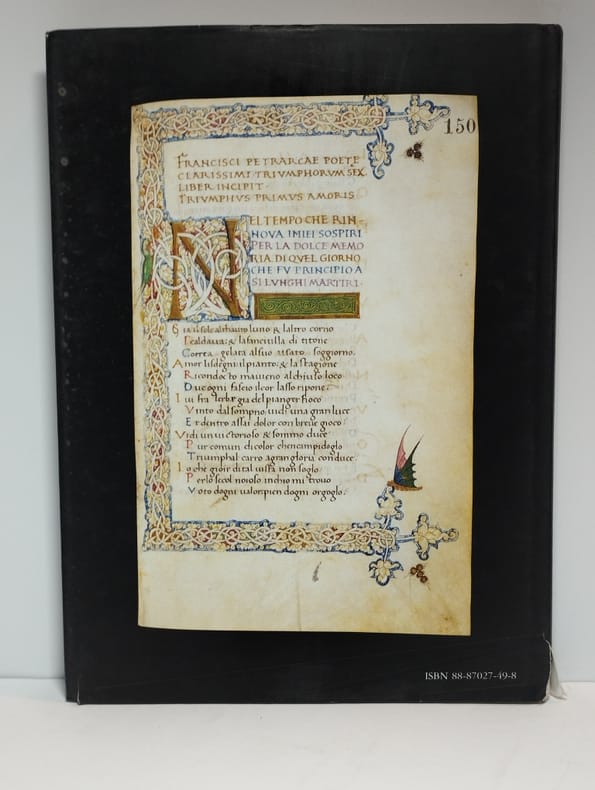 150
FRANCISCI PETRARCAE POETE
CLARISSIMI TRIVMPHORVM SEX
LIBER INCIPIT·
TRIVMPHVS PRIMVS AMORIS
NEL TEMPO CHE RIN-
NOVA IMIEI SOSPIRI
PER LA DOLCE MEMO
RIA DI QVEL GIORNO
CHE FV PRINCIPIO A
SI LVNGHI MARTIRI·
Gia il sole al thauro luno & laltro corno
Scaldaua: & la fanciulla di titone
Correa gelata al suo usato soggiorno.
Amor li sdegni: il pianto: & la stagione
Ricondocto mauieno al chiuso loco
Due ogni fascio il cor lasso ripone:
Iui fra lerbe gia del pianger fioco
Vinto dal sompno: uidi una gran luce
Et dentro assai dolor con breue gioco:
Vidi un uictorioso & sommo duce
Pur comun di color chencampidoglo
Triumphal carro a gran gloria conduce.
Io che gioir di tal uista non soglo
Per lo secol noioso inchio mi trouo
Voto dogni ualor pien dogni orgoglo:
ISBN 88-87027-49-8